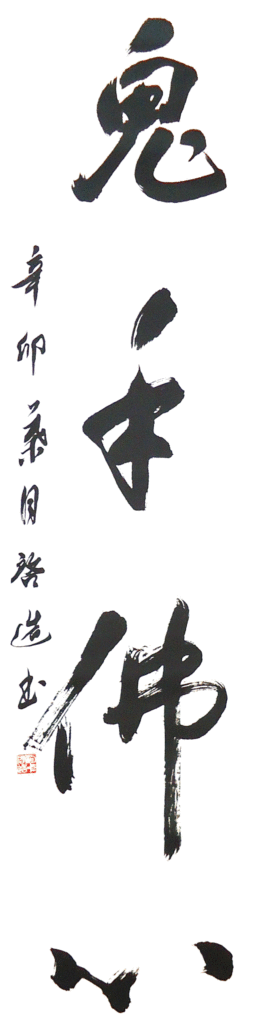 鬼手佛心
辛卯葉月啓造書